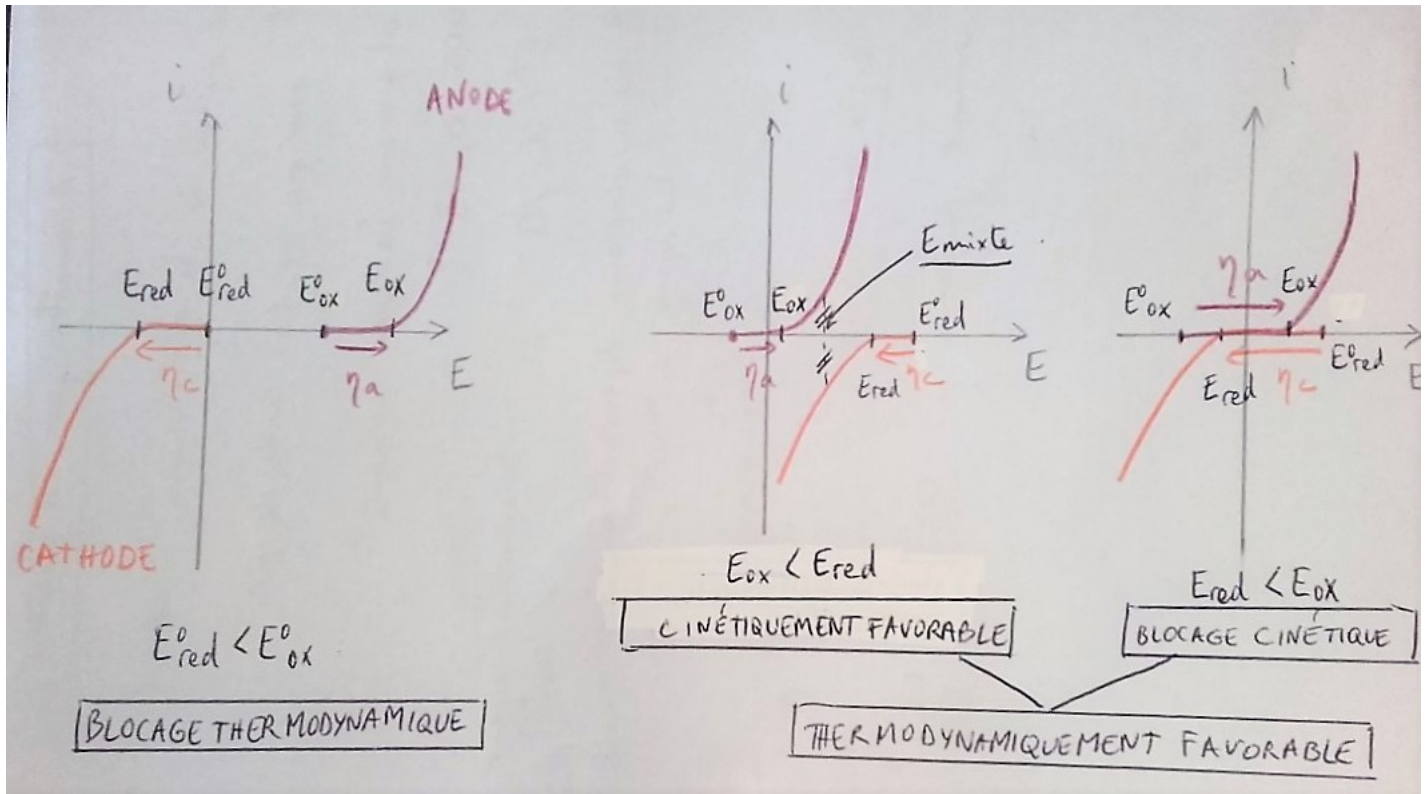 i
ANODE
E red E°red E°ox E ox
ηc
ηa
E
CATHODE
E°red < E°ox
BLOCAGE THERMODYNAMIQUE
i
E mixte
E°ox E ox
E°red
ηa
E red
ηc
E
E ox < E red
CINÉTIQUEMENT FAVORABLE
i
ηa
E°ox
E ox
E°red
E red
ηc
E
E red < E ox
BLOCAGE CINÉTIQUE
THERMODYNAMIQUEMENT FAVORABLE